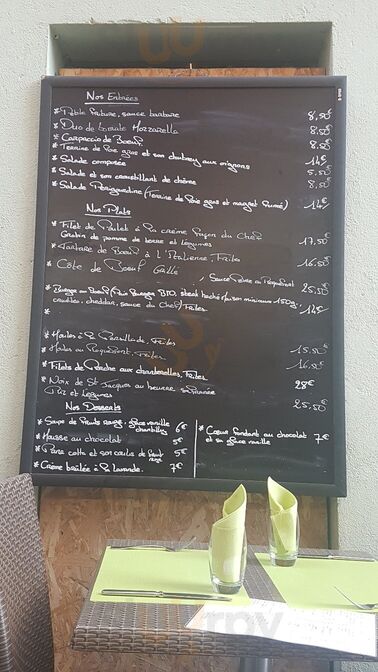 Nos Entrées
* Petite friture, sauce tartare 8,50€
* Duo de tomate Mozzarella 8,50€
* Carpaccio de Boeuf 8.50€
* Terrine de Foie gras et son chutney aux oignons 14€
* Salade composée 5.50€
* Salade et son croustillant de chèvre 8,50€
* Salade Périgourdine (Terrine de Foie gras et magret fumé) 14€
Nos Plats
* Filet de Poulet à la crème façon du Chef 17,50€
Gratin de pomme de terre et légumes
* Tartare de Boeuf à l'Italienne, Frites 16.50€
* Côte de Boeuf Grillé
, Sauce Poivre ou Roquefort 25.50€
* Burger au Boeuf ( Burger BIO, steak haché minimum 150g,
cheddar, sauce du Chef) Frites 14€
*
Moules à la Persillade, Frites 15.50€
* Moules au Roquefort, Frites 16.50€
* Filets de Perche aux chanterelles, Frites 28€
* Noix de St Jacques au beurre
Riz et Légumes 25.50€
Nos Desserts
* Soupe de fruits rouge, glace vanille 6€
chantilly
* Mousse au chocolat 5€
* Pana cotta et son coulis de fruits 5€
rouge
* Crème brûlée à la lavande. 7€
* Coeur fondant au chocolat 7€
et sa glace vanille